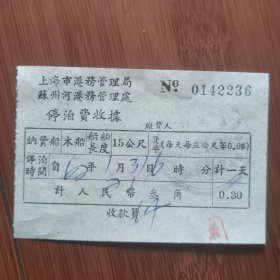 上海市港務管理局
蘇州河港務管理處
№ 0142236
停泊費收據
繳費人
納費船 木船 船舶長度 15公尺 費率(每天每三公尺 0.06)
停泊時間 自62年1月31日 時 分計一天
計人民幣叁角 0.30
收款